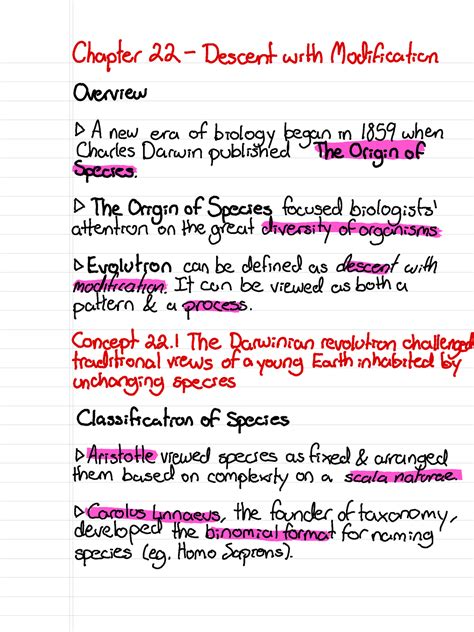 Chapter 22 - Descent with Modification
Overview
▷ A new era of biology began in 1859 when
Charles Darwin published The Origin of
Species.
▷ The Origin of Species focused biologists'
attention on the great diversity of organisms
▷ Evolution can be defined as descent with
modification. It can be viewed as both a
pattern & a process.
Concept 22.1 The Darwinian revolution challenged
traditional views of a young Earth inhabited by
unchanging species
Classification of Species
▷ Aristotle viewed species as fixed & arranged
them based on complexity on a scala naturae.
▷ Carolus Linnaeus, the founder of taxonomy,
developed the binomial format for naming
species (eg. Homo Sapions).